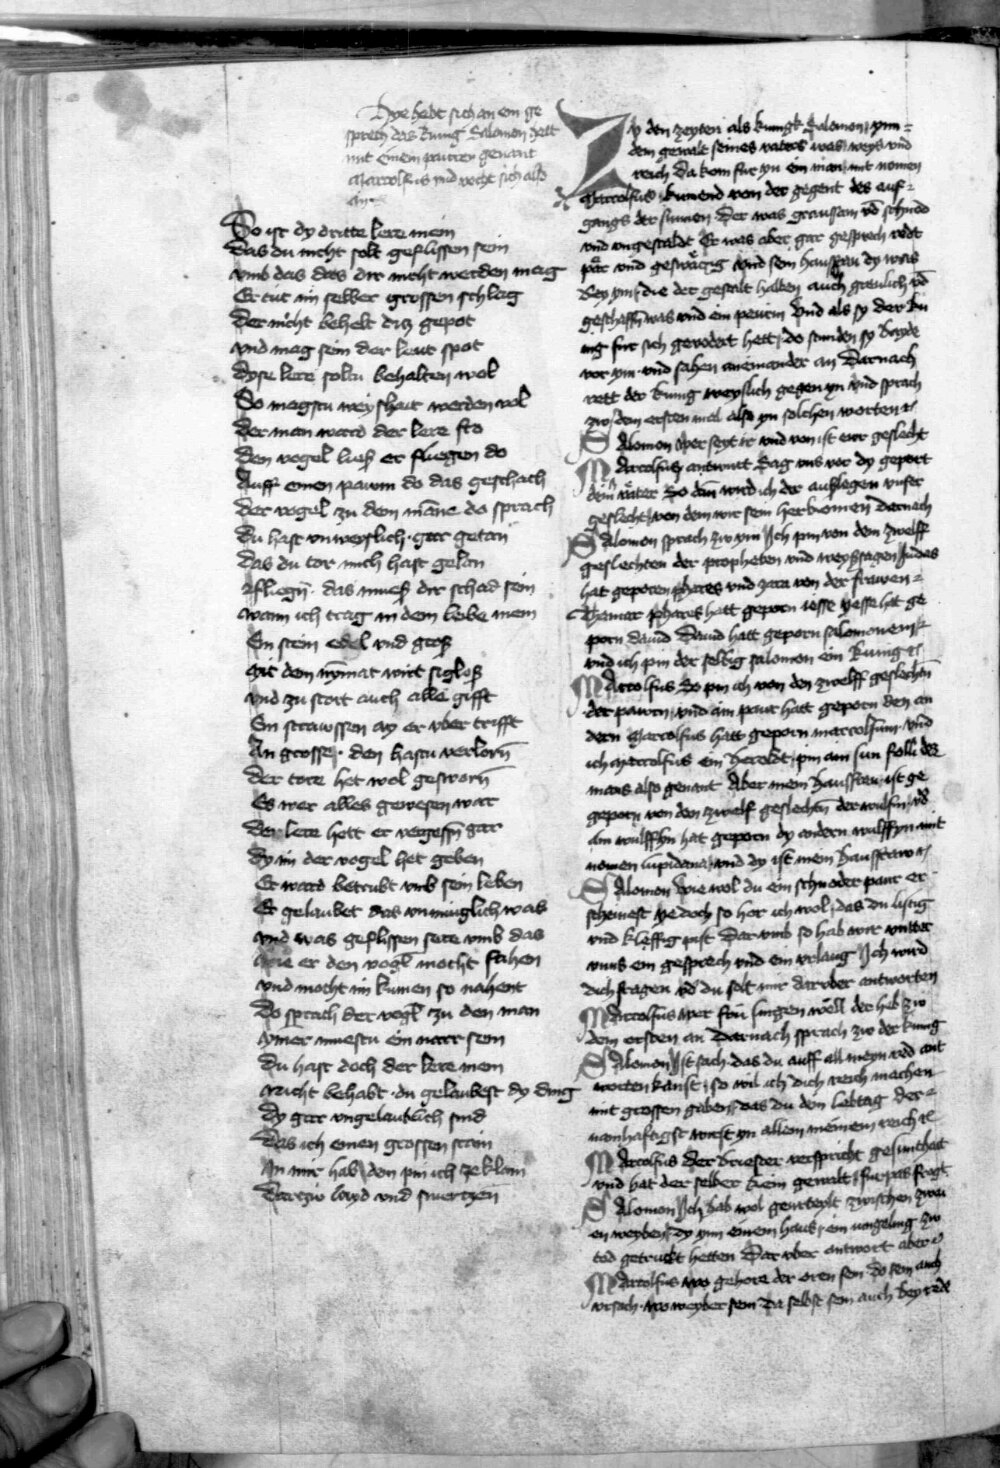 Hye hebt sich an ein ge
sprech das kunig Salomon hett
mit einem pauren genant
Marcolfus vnd vecht sich also
an
So ist dy dritte lere mein
Das du nicht solt geflissen sein
vmb das das dir nicht werden mag
Er tut im selber grossen schlag
Der nicht behelt diz gepot
vnd mag sein der leut spot
dyse lere soltu behalten wol
So magstu weyshait werden vol
Der man ward der lere fro
Den vogel lies er fliegen do
Auff einen pawm do das geschach
Der vogel zu dem mane do sprach
Du hast vnweyslich gar getan
Das du tor mich hast gelan
das mues dir schad sein
wann ich trag in dem leibe mein
Ein stein edel vnd gros
Mit dem nymat wirt siglos
vnd zu stort auch alle gifft
Ein straussen ay er vber trifft
An grosse den hastu verlorn
Der tore het wol gesworn
Es wer alles gewesen war
Der lere hett er vergessn gar
Dy im der vogel het geben
Er ward betrubt vmb sein leben
Er gelaubet das vnmuglich was
vnd was geflissen sere vmb das
Wie er den vogl mocht fahen
vnd mocht im kumen so nahent
Do sprach der vogl zu den man
ymer muestu ein narr sein
Du hast doch der lere mein
Nicht behabt du gelaubest dy ding
Dy gar vngelaublich sind
Das ich einen grossen stein
In mir hab den pin ich ze klain
Darzw layd vnd smertzen
Zu den zeyten als kunigk Salomon ynn
dem gewalt seines vaters was weys vnd
reich Da kom fur yn ein man mit nomen
Marcolfus kumend von der gegent des auf
gangs der sunnen Der was graussam vnd schnod
vnd vngestaldt Er was aber gar gesprech redt
par vnd geswatzig vnd sein hausfrau dy was
bey ym die der gestalt halben auch greulich vnd
geschaffn was vnd ein peurin Vnd als sy der ku
nig fur sich gevodert hett do stunden sy bayde
vor ym vnd sahen aneinander an Darnach
rett der kunig weyslich gegen yn vnd sprach
zw dem ersten mal also yn solchen worten
Salomon Wer seyt ir vnd von ist ewr geslecht
Marcolfus antwurtt Sag vns vor dy gepurt
dein vater So dan wird ich dir auslegen vnser
geslecht von dem wir sein herkomen Dernach
Salomon sprach zw ym Ich pin von den zwelff
geslechten der propheten vnd weyssagen Judas
hat geporen phares vnd zara von der frawen
Thamar phares hatt geporn iesse yesse hat ge
porn dauid Dauid hatt geporn salomonem
vnd ich pin der selbig salomon ein kunig
Marcolfus So pin ich von den zwelff geslechtn
der pawrn vnd ain paur hatt geporn den an
dern Marcolfus hatt geporn marcolfum vnd
ich Marcolfus ein pin am sun folli des
mans also genant Aber mein hausfraw ist ge
geporn von den zwelf geslechtn der wulfin vnd
ain wulffyn hat geporn dy andern wulffyn mit
nomen lupidana vnd dy ist mein hausfraw
Salomon Wie wol du ein schnoder paur er
scheinest ye doch so hor ich wol das du listig
vnd kleffig pist Dar vmb so hab wir vnter
vnns ein gesprech vnd ein vrlaug Ich wird
dich fragen vnd du solt mir darvber antworten
Marcolfus Wer singen well der heb zw
dem ersten an Darnach sprach zw der kunig
Salomon Ist sach das du auff all meyn red ant
worten kanst so wil ich dich reich machen
mit grossen gaben das du dein lebtag der
nanhaftigst wirst yn allem meinem reich
Marcolfus Der briester verspricht gesuntheit
vnd hat der selber kein gewalt furpas fragt
Salomon Ich hab wol geurteylt zwischen zwai
en weyben dy ynn einem haus ein iungeling zw
tod getruckt hetten Dar vber antwort aber
Marcolfus Wo gehore der oren sein do sein auch
vrsach wo weyber sein Da selbst sein auch bey rede